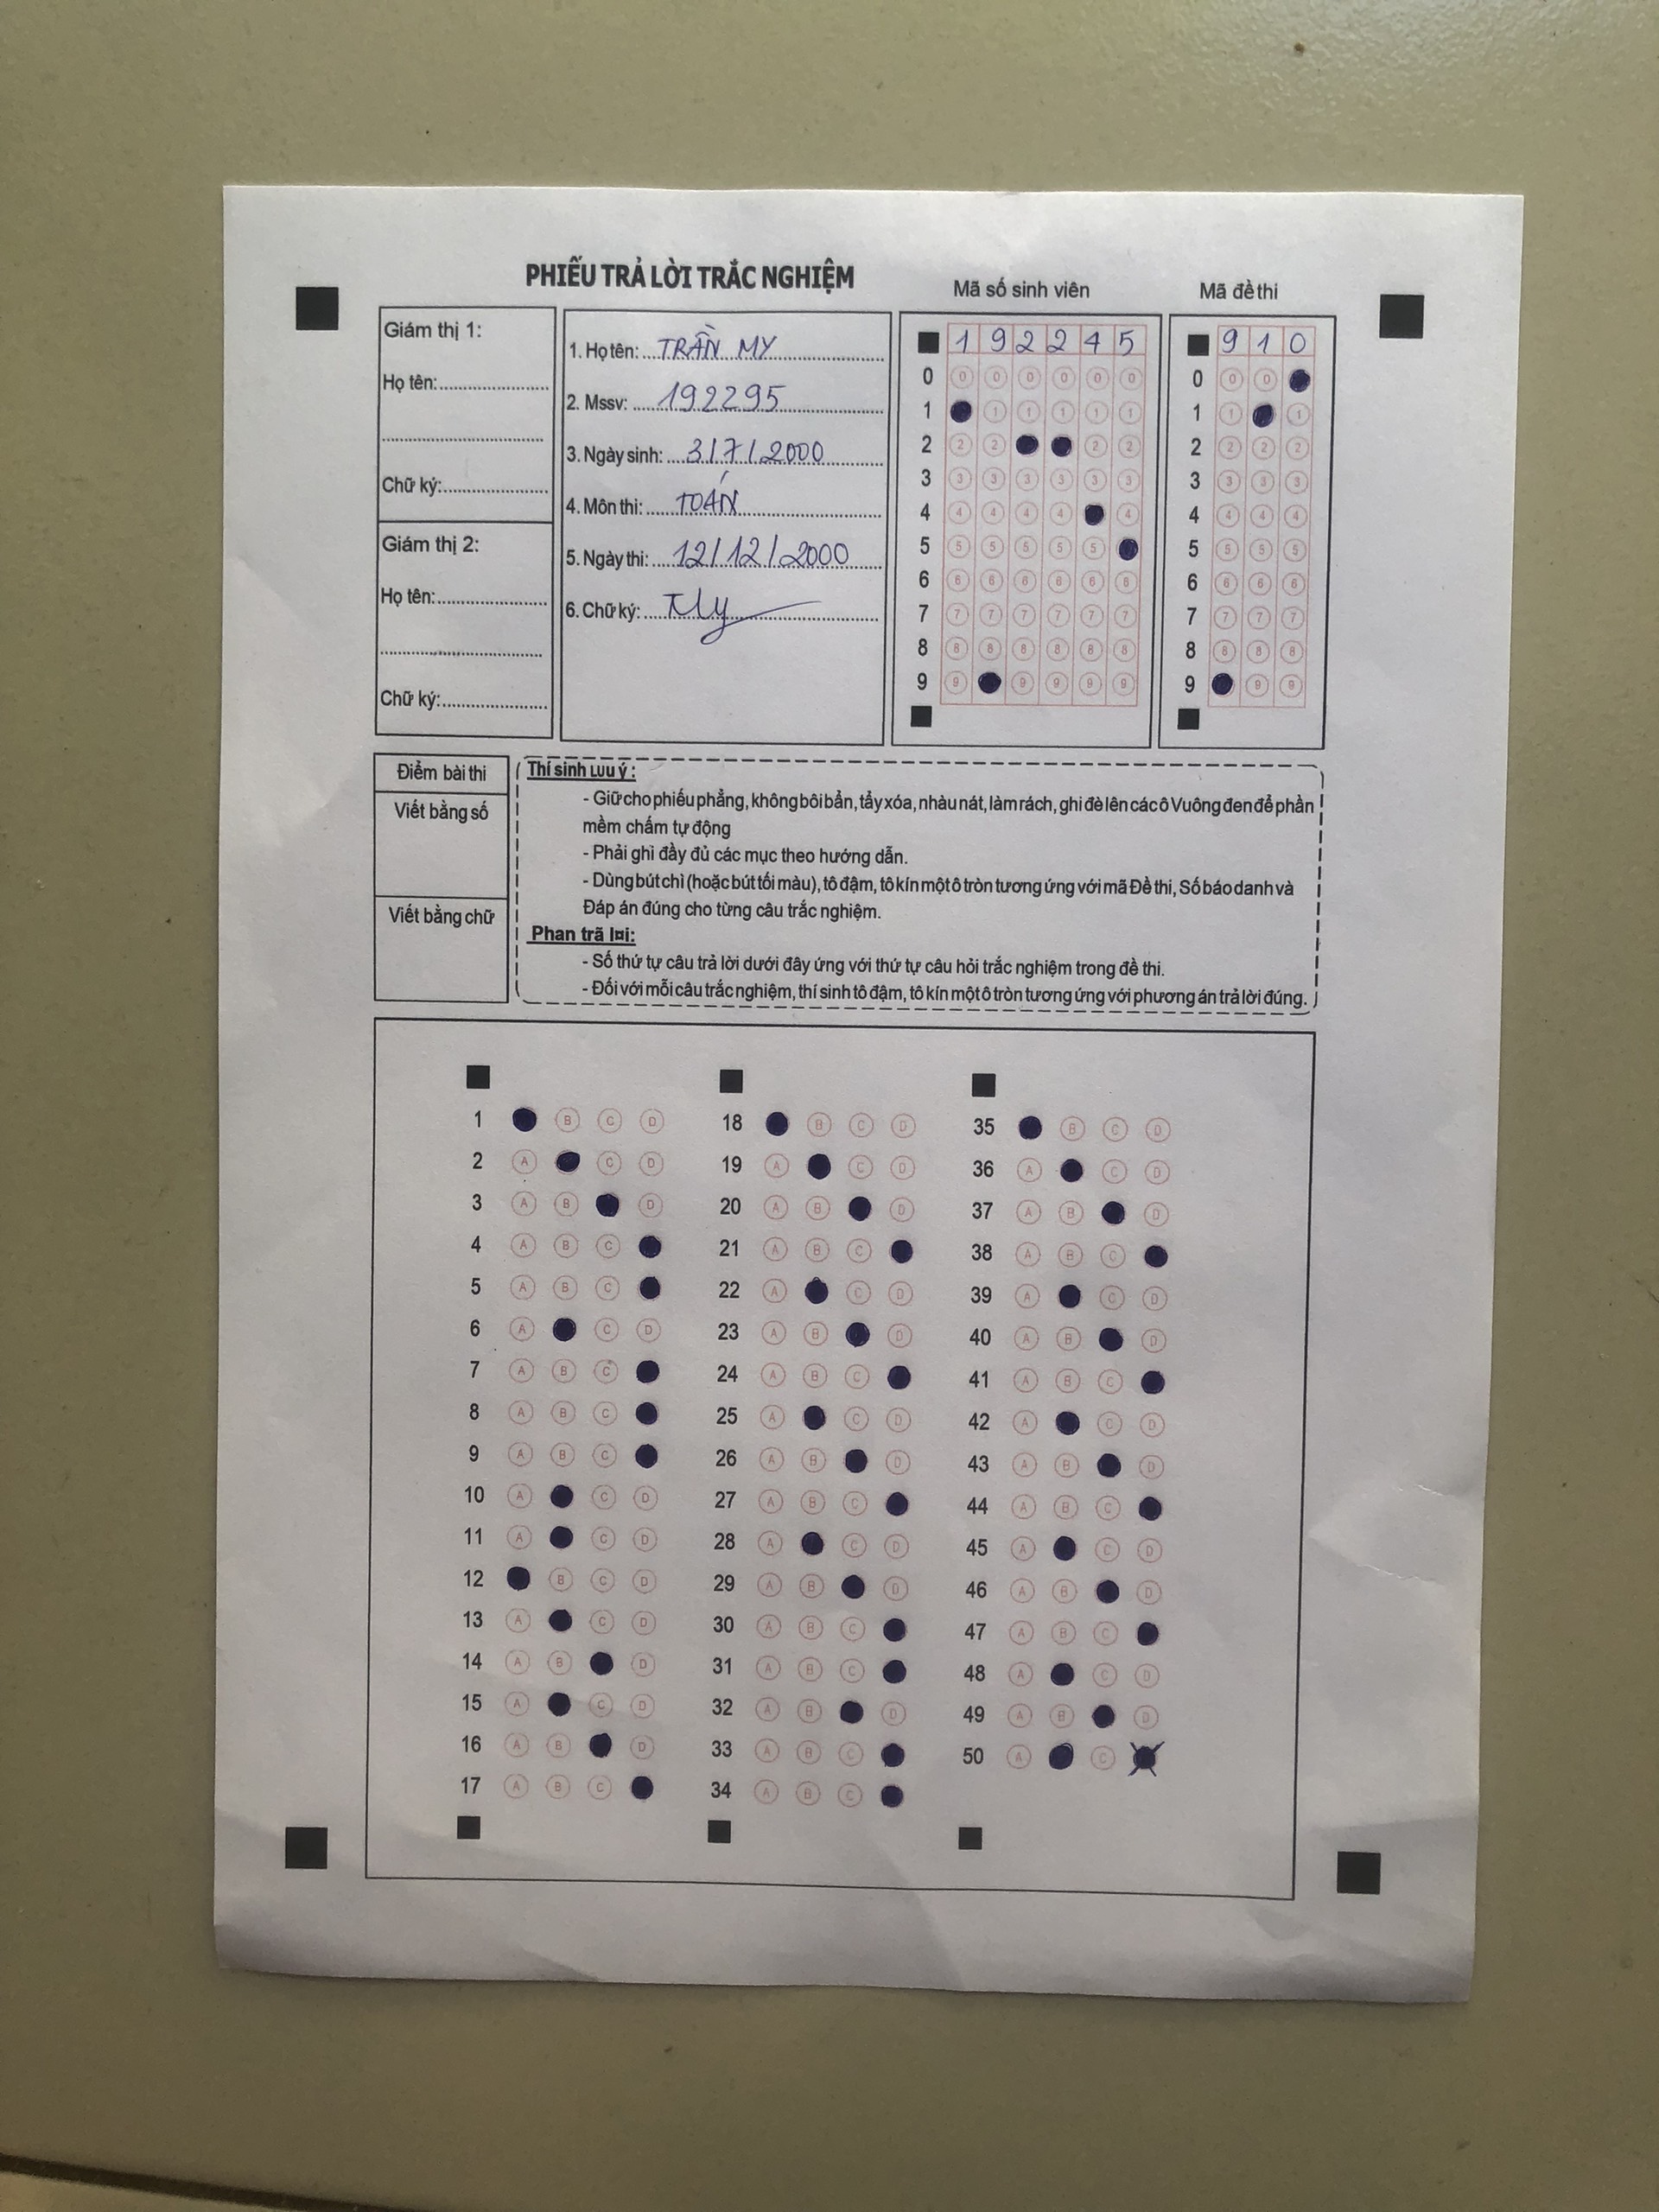 PHIẾU TRẢ LỜI TRẮC NGHIỆM
Mã số sinh viên
Mã đề thi
Giám thị 1:
Họ tên:
Chữ ký:
Giám thị 2:
Họ tên:
Chữ ký:
1. Họ tên: TRẦN MY
2. Mssv: 192295
3. Ngày sinh: 3/7/2000
4. Môn thi: TOÁN
5. Ngày thi: 12/12/2000
6. Chữ ký: My
1 9 2 2 4 5
0 0 0 0 0 0 0
1 1 1 1 1 1
2 2 2 2 2
3 3 3 3 3 3 3
4 4 4 4 4 4
5 5 5 5 5 5
6 6 6 6 6 6 6
7 7 7 7 7 7 7
8 8 8 8 8 8 8
9 9 9 9 9 9
9 1 0
0 0 0
1 1 1
2 2 2 2
3 3 3 3
4 4 4 4
5 5 5 5
6 6 6 6
7 7 7 7
8 8 8 8
9 9 9
Điểm bài thi
Viết bằng số
Viết bằng chữ
Thí sinh LƯU ý :
- Giữ cho phiếu phẳng, không bôi bẩn, tẩy xóa, nhàu nát, làm rách, ghi đè lên các ô Vuông đen để phần
mềm chấm tự động
- Phải ghi đầy đủ các mục theo hướng dẫn.
- Dùng bút chì (hoặc bút tối màu), tô đậm, tô kín một ô tròn tương ứng với mã Đề thi, Số báo danh và
Đáp án đúng cho từng câu trắc nghiệm.
Phan trã l¤i:
- Số thứ tự câu trả lời dưới đây ứng với thứ tự câu hỏi trắc nghiệm trong đề thi.
- Đối với mỗi câu trắc nghiệm, thí sinh tô đậm, tô kín một ô tròn tương ứng với phương án trả lời đúng.
1 B C D
2 A C D
3 A B D
4 A B C
5 A B C
6 A C D
7 A B C
8 A B C
9 A B C
10 A C D
11 A C D
12 B C D
13 A C D
14 A B D
15 A C D
16 A B D
17 A B C
18 B C D
19 A C D
20 A B D
21 A B C
22 A C D
23 A B D
24 A B C
25 A C D
26 A B D
27 A B C
28 A C D
29 A B D
30 A B C
31 A B C
32 A B D
33 A B C
34 A B C
35 B C D
36 A C D
37 A B D
38 A B C
39 A C D
40 A B D
41 A B C
42 A C D
43 A B D
44 A B C
45 A C D
46 A B D
47 A B C
48 A C D
49 A B D
50 A C